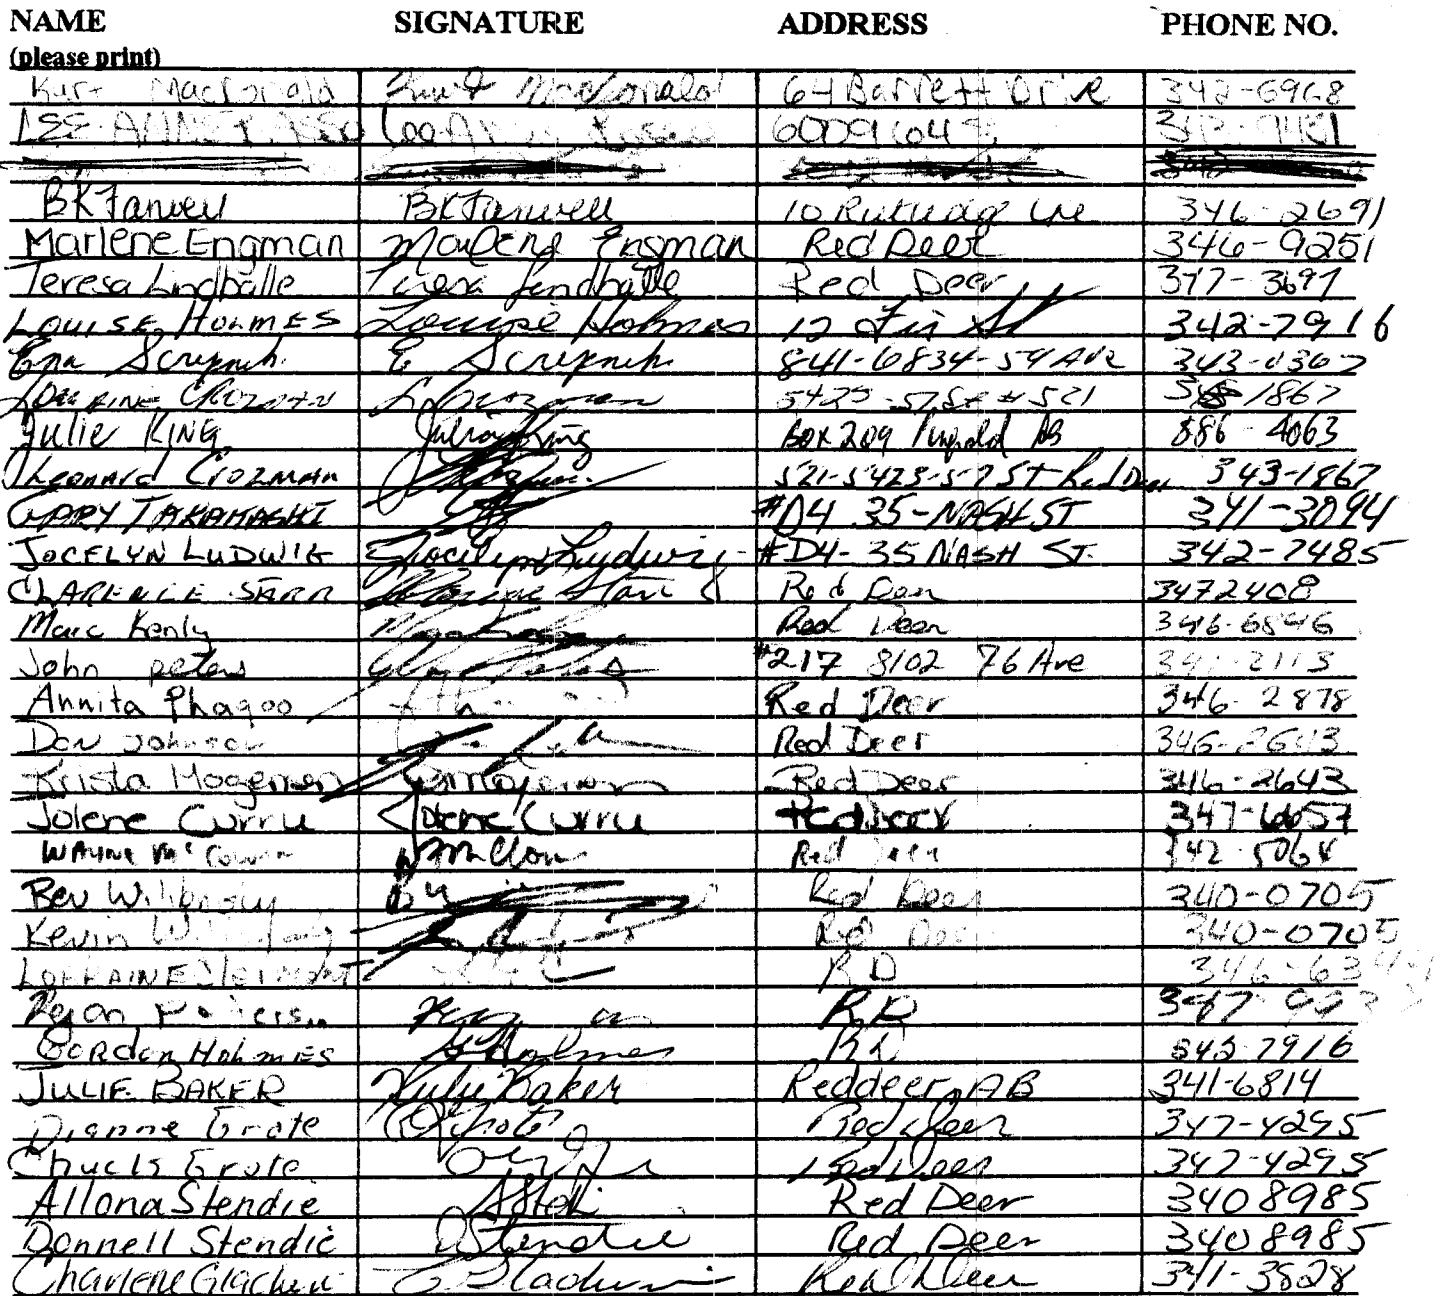 NAME SIGNATURE ADDRESS PHONE NO.
(please print)
Kurt MacDonald Kurt MacDonald 64 Barrett Drive 342-6968
LEE-ANNE Lee-Anne 6009 64
BKFarwell BKFarwell 10 346-2691
Marlene Engman Marlene Engman Red Deer 346-9251
Teresa Lindballe Teresa Lindballe Red Deer 347-3697
LOUISE HOLMES Louise Holmes 12 Fir St 342-7916
Scrypnik E Scrypnik 841-6834-59 Ave 343-0367
LORRAINE CROZMAN L Crozman 5423-57 St #521 1867
Julie KING Julie King Box 209 AB 886-4063
Leonard CROZMAN 521-5423-57 ST Red Deer 343-1867
GARY TAKAHASHI #D4 35-NASH ST 341-3094
JOCELYN LUDWIG Jocelyn Ludwig #D4-35 NASH ST. 342-7485
CLARENCE STARR Clarence Starr Red Deer 3472408
Marc Kenly Red Deer 346-6846
John peters #217 8102 76 Ave 341-2113
Annita Phagoo Red Deer 346-2878
Don Johnson Red Deer 346-2643
Krista Mogensen Red Deer 346-2643
Jolene Curru Jolene Curru Red Deer 347-6657
WAYNE McCown Red Deer 342-5064
Bev Red Deer 340-0705
Kevin Red Deer 340-0705
LORRAINE RD
RD 347
GORDON HOLMES G Holmes RD 343-7916
JULIE BAKER Julie Baker Reddeer, AB 341-6814
Dianne Grote D Grote Red Deer 347-4295
Chuck Grote Red Deer 347-4295
Allona Stendie Red Deer 3408985
Donnell Stendie D Stendie Red Deer 3408985
Charlene Red Deer 341-3528